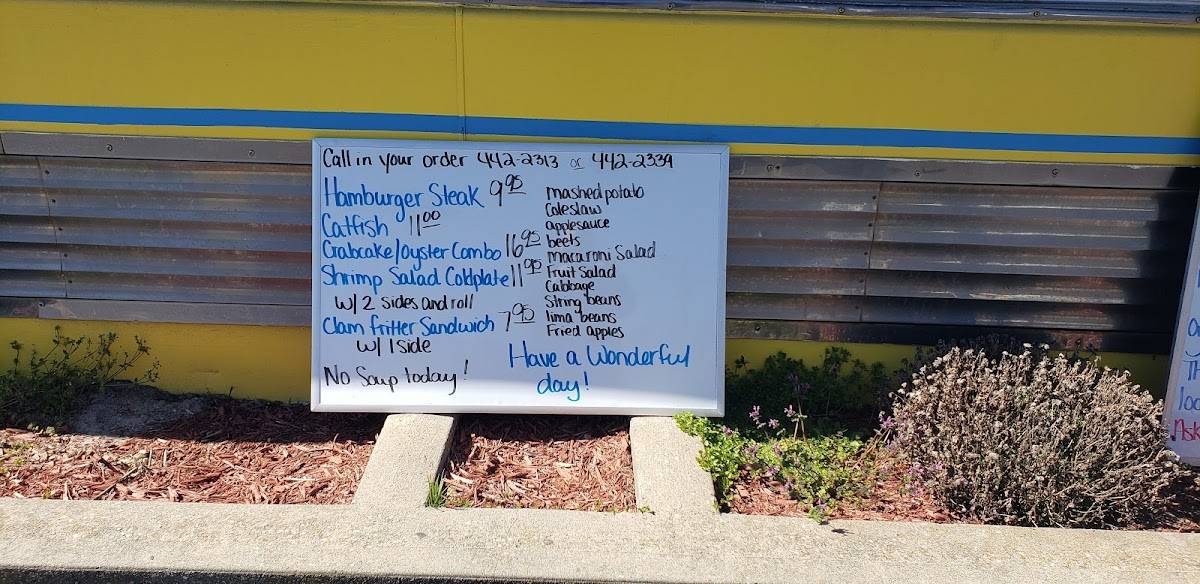 Call in your order 442-2313 or 442-2339
Hamburger Steak 9.95
Catfish 11.00
Crabcake/Oyster Combo 16.95
Shrimp Salad Coldplate 11.95
w/ 2 sides and roll
Clam fritter Sandwich 7.95
w/ 1 side
No Soup today!
mashed potato
Coleslaw
applesauce
beets
macaroni Salad
Fruit Salad
Cabbage
String beans
lima beans
Fried apples
Have a Wonderful
day!
Ask